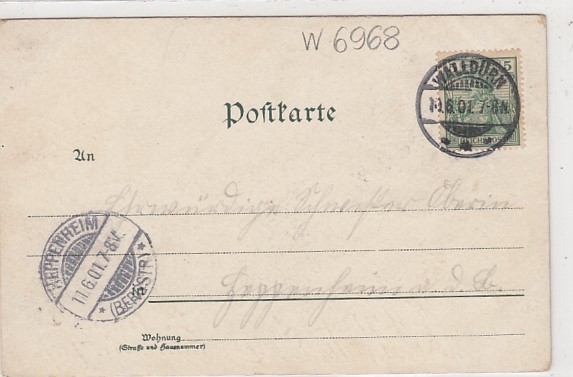 W 6968
5
WALLDÜRN
10.6.01. 7-8N.
REICHSPOST
Postkarte
An
Ehrwürdige Schwester Oberin
HEPPENHEIM
11.6.01. 7-8V.
(BERGSTR.)
in
Heppenheim a. d. B.
Wohnung
(Straße und Hausnummer)